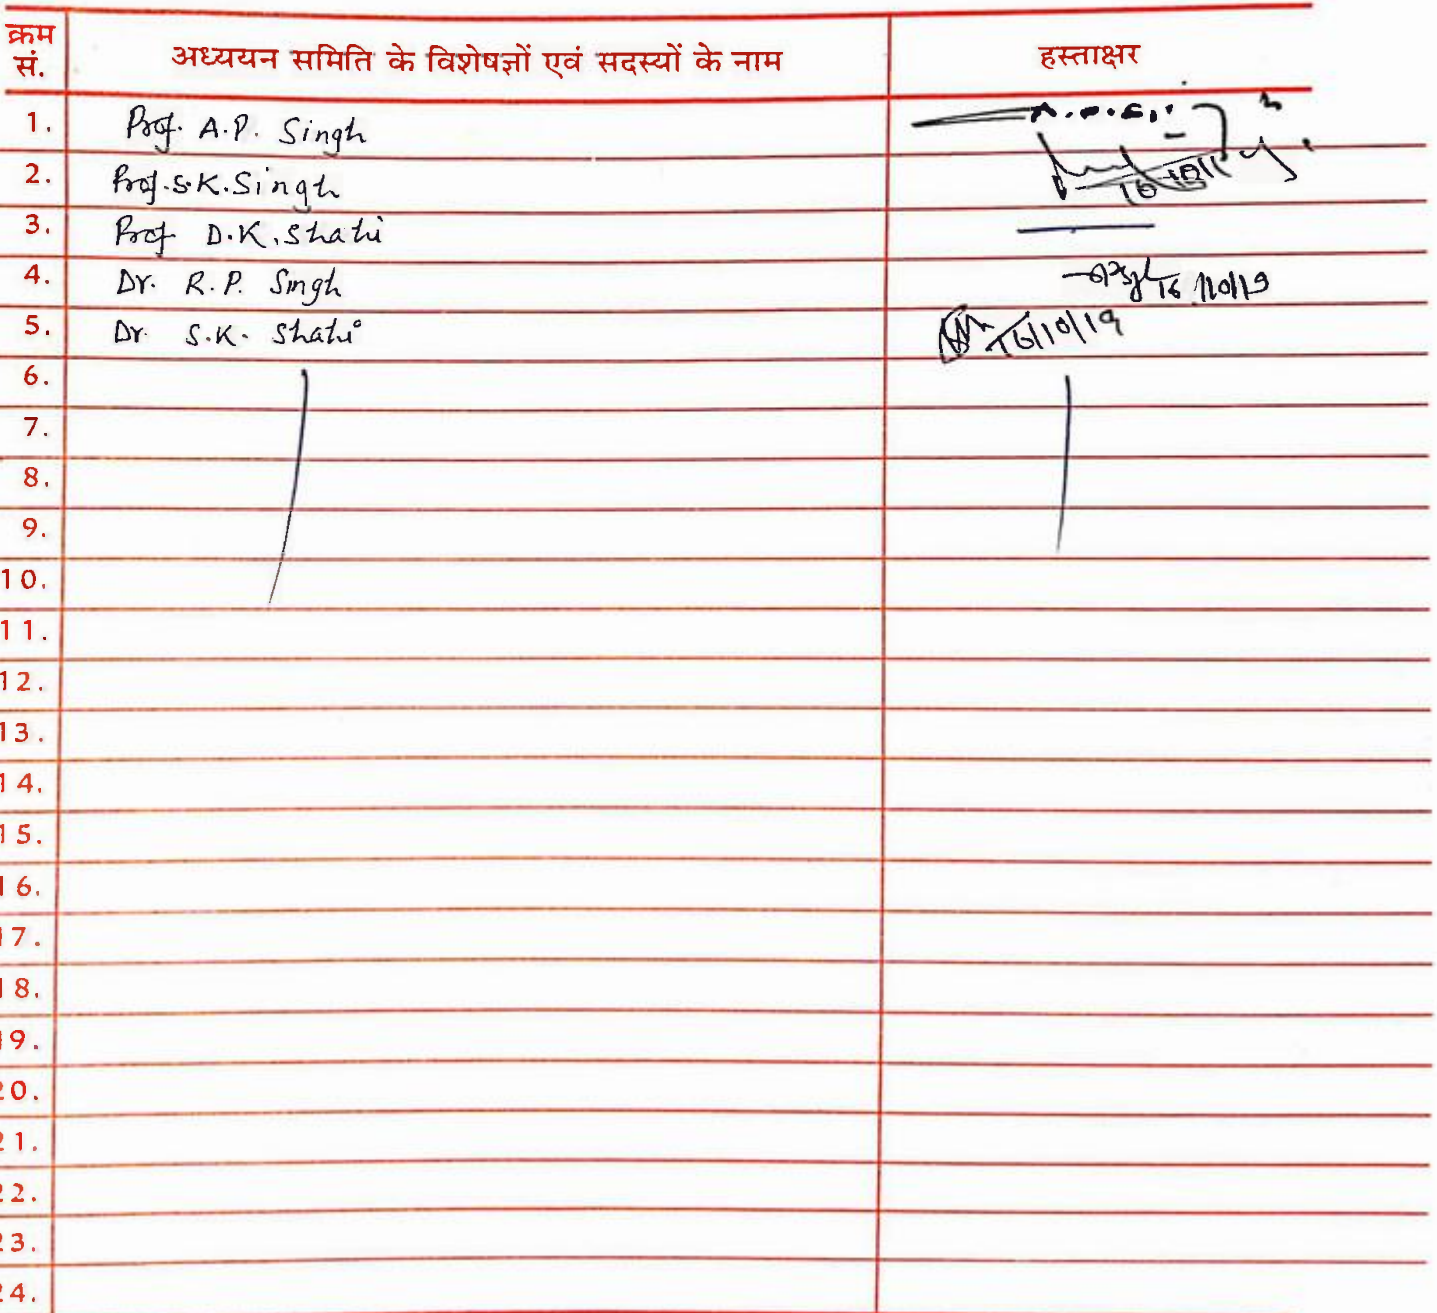 क्रम सं. अध्ययन समिति के विशेषज्ञों एवं सदस्यों के नाम हस्ताक्षर
1. Prof. A.P. Singh
2. Prof. S.K. Singh
3. Prof D.K. Shahi
4. Dr. R.P. Singh 16/10/19
5. Dr. S.K. Shahi 16/10/19
6.
7.
8.
9.
10.
11.
12.
13.
14.
15.
16.
17.
18.
19.
20.
21.
22.
23.
24.